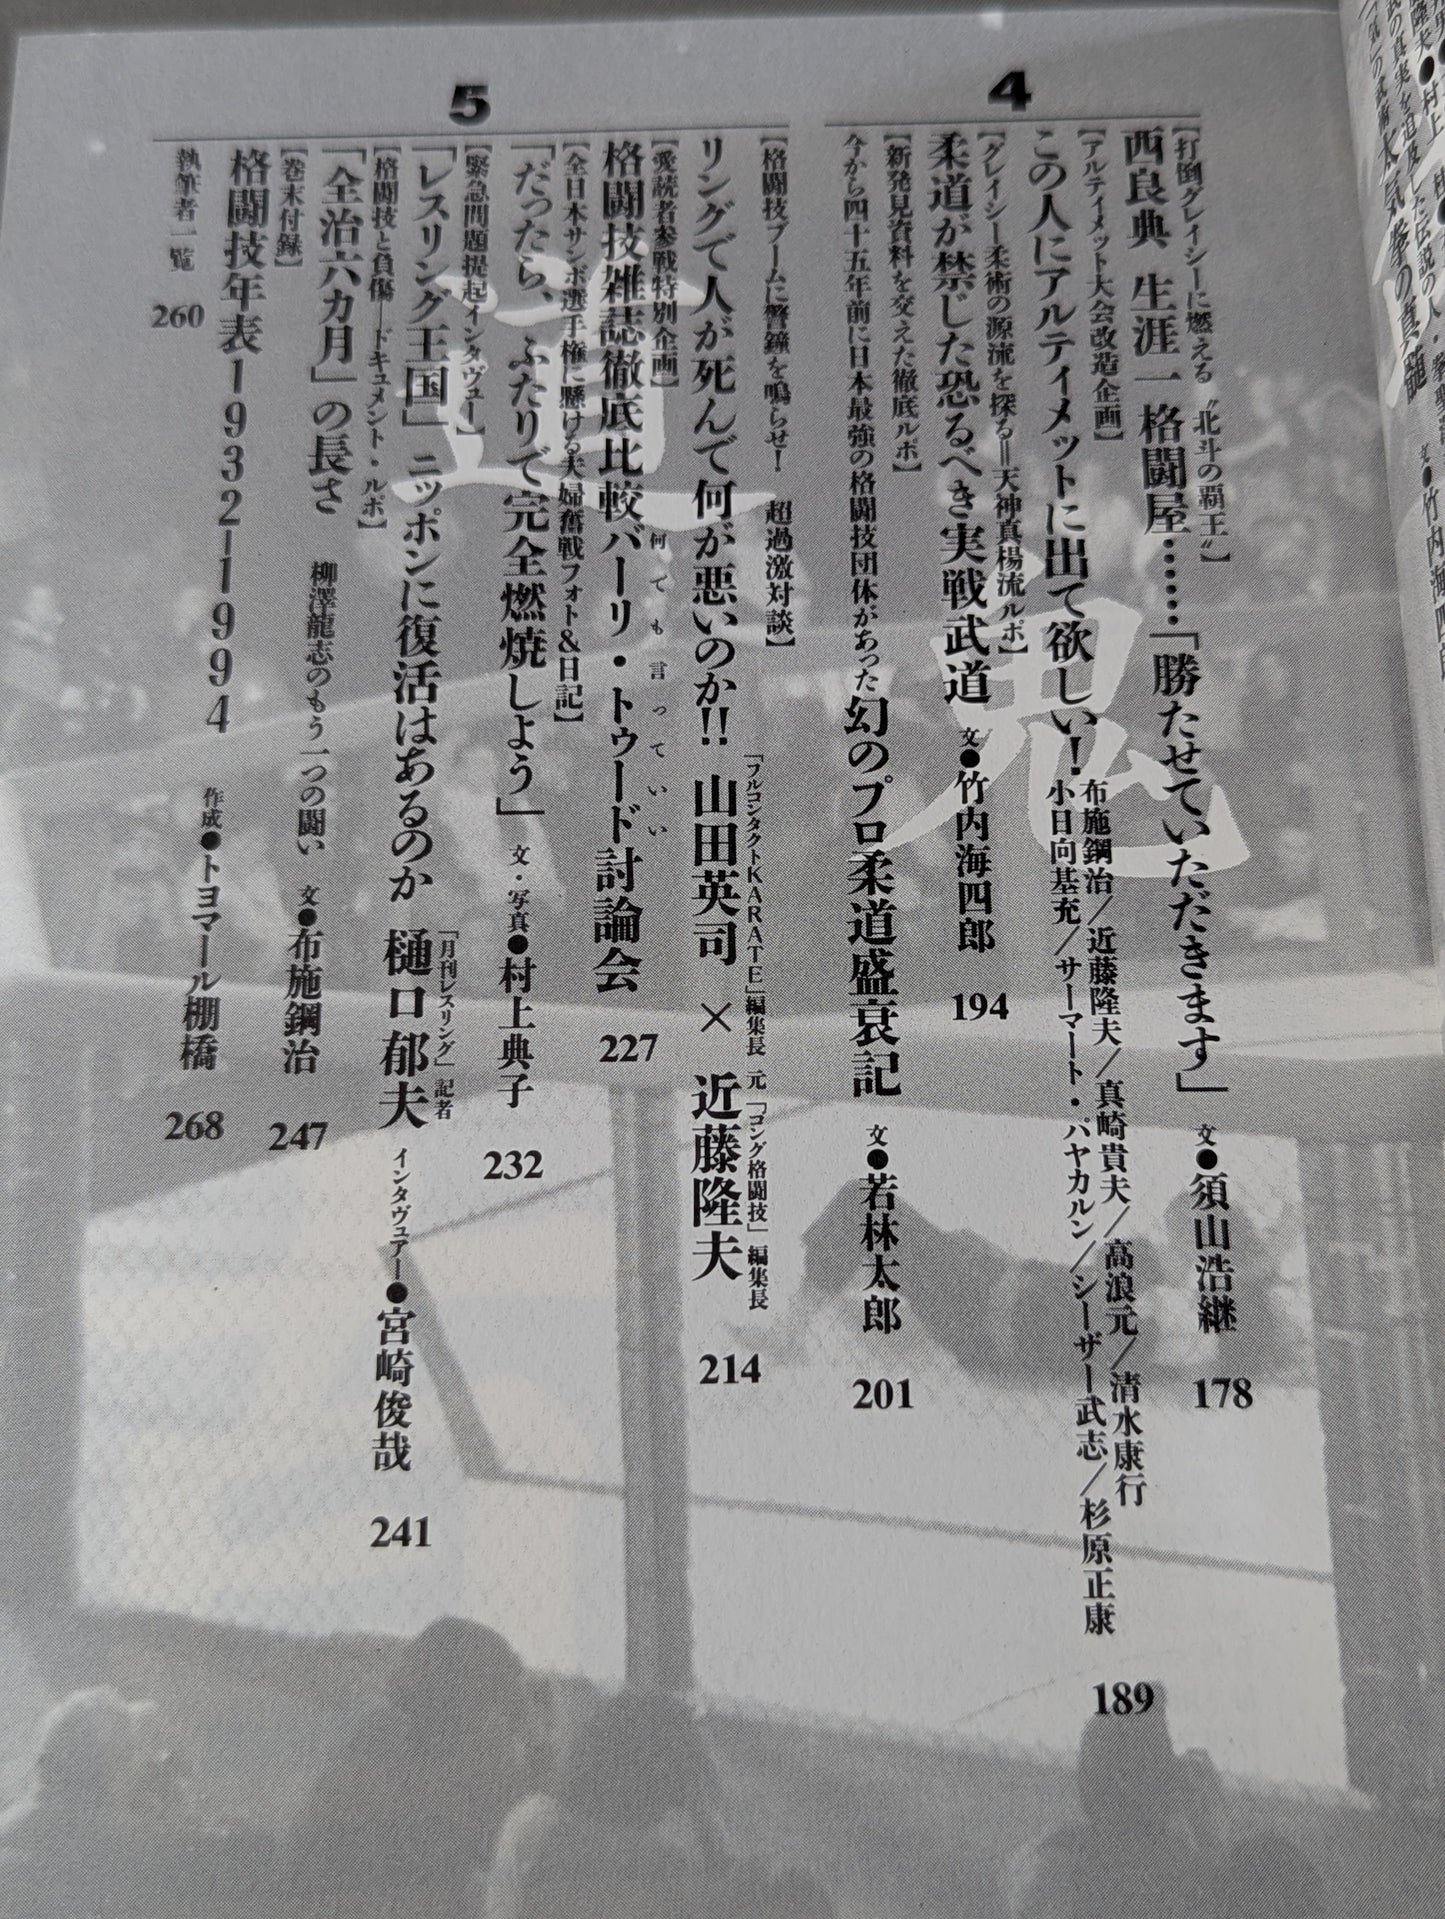 4
【打倒グレイシーに燃える〝北斗の覇王〟】
西良典 生涯一格闘屋……「勝たせていただきます」 文●須山浩継 178
【アルティメット大会改造企画】
この人にアルティメットに出て欲しい！
布施鋼治／近藤隆夫／真崎貴夫／高浪元／清水康行
小日向基充／サーマート・パヤカルン／シーザー武志／杉原正康 189
【グレイシー柔術の源流を探る＝天神真楊流ルポ】
柔道が禁じた恐るべき実戦武道 文●竹内海四郎 194
【新発見資料を交えた徹底ルポ】
今から四十五年前に日本最強の格闘技団体があった 幻のプロ柔道盛衰記 文●若林太郎 201
5
【格闘技ブームに警鐘を鳴らせ！ 超過激対談】
リングで人が死んで何が悪いのか!! 「フルコンタクトKARATE」編集長 山田英司 × 元「ゴング格闘技」編集長 近藤隆夫 214
【愛読者参戦特別企画】
格闘技雑誌徹底比較バーリ・トゥード討論会 227
何でも言っていい
【全日本サンボ選手権に懸ける夫婦奮戦フォト&日記】
「だったら、ふたりで完全燃焼しよう」 文・写真●村上典子 232
【緊急問題提起インタヴュー】
「レスリング王国」ニッポンに復活はあるのか 「月刊レスリング」記者 樋口郁夫 インタヴュアー●宮崎俊哉 241
【格闘技と負傷―ドキュメント・ルポ】
「全治六カ月」の長さ 柳澤龍志のもう一つの闘い 文●布施鋼治 247
【巻末付録】
格闘技年表1932-1994 作成●トヨマール棚橋 268
執筆者一覧 260
道
鬼